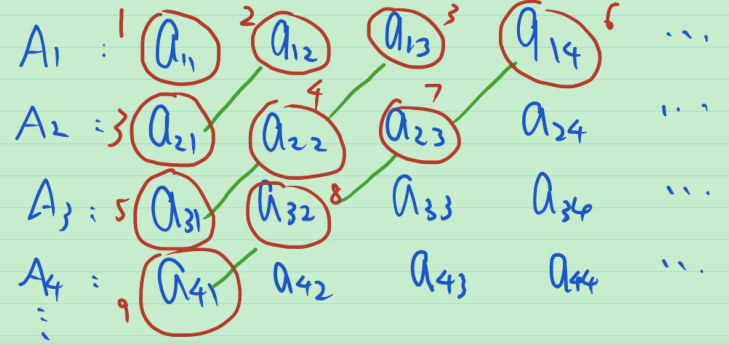 A₁ : 1 a₁₁ 2 a₁₂ a₁₃ 3 a₁₄ 6 ...
A₂ : 3 a₂₁ 4 a₂₂ 7 a₂₃ a₂₄ ...
A₃ : 5 a₃₁ a₃₂ 8 a₃₃ a₃₄ ...
A₄ : 9 a₄₁ a₄₂ a₄₃ a₄₄ ...
⋮